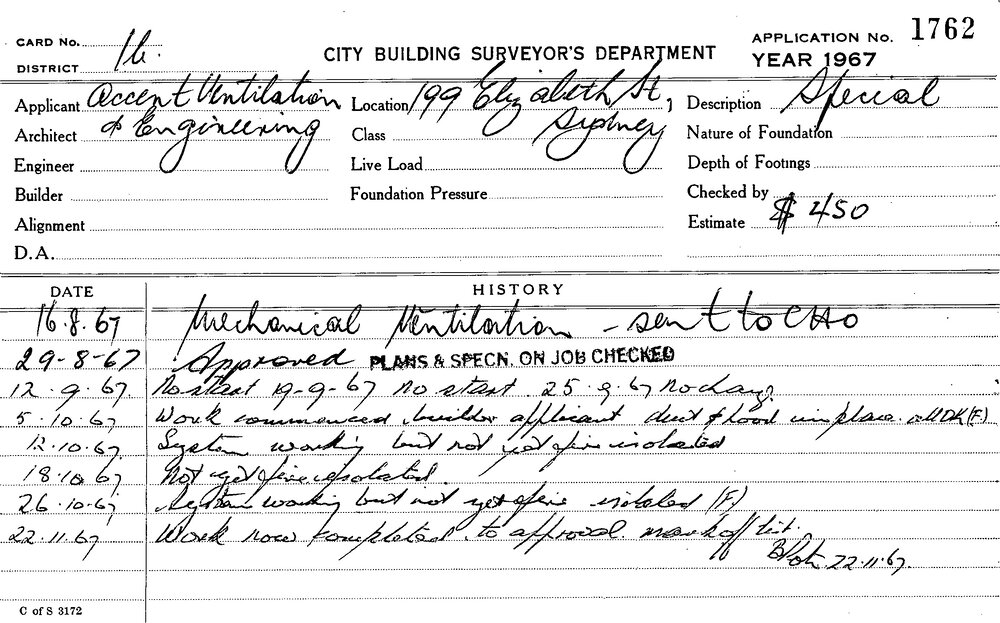 CARD No. 16.
DISTRICT
CITY BUILDING SURVEYOR'S DEPARTMENT
APPLICATION No. 1762
YEAR 1967
Applicant Accent Ventilation
Location 199 Elizabeth St,
Description Special
Architect & Engineering
Class Sydney
Nature of Foundation
Engineer
Live Load
Depth of Footings
Builder
Foundation Pressure
Checked by
Alignment
Estimate $ 450
D.A.
DATE HISTORY
16.8.67 Mechanical Ventilation - sent to CHO
29-8-67 Approved PLANS & SPECN. ON JOB CHECKED
12.9.67. No start 19-9-67 No start. 25.9.67 No change
5.10.67 Work commenced builder applicant duct & hood in place all OK (F)
12.10.67. System working but not yet fire isolated
18.10.67 Not yet fire isolated.
26.10.67 System working but not yet fire isolated (F)
22.11.67 Work now completed to approval mark off list.
22.11.67.
C of S 3172